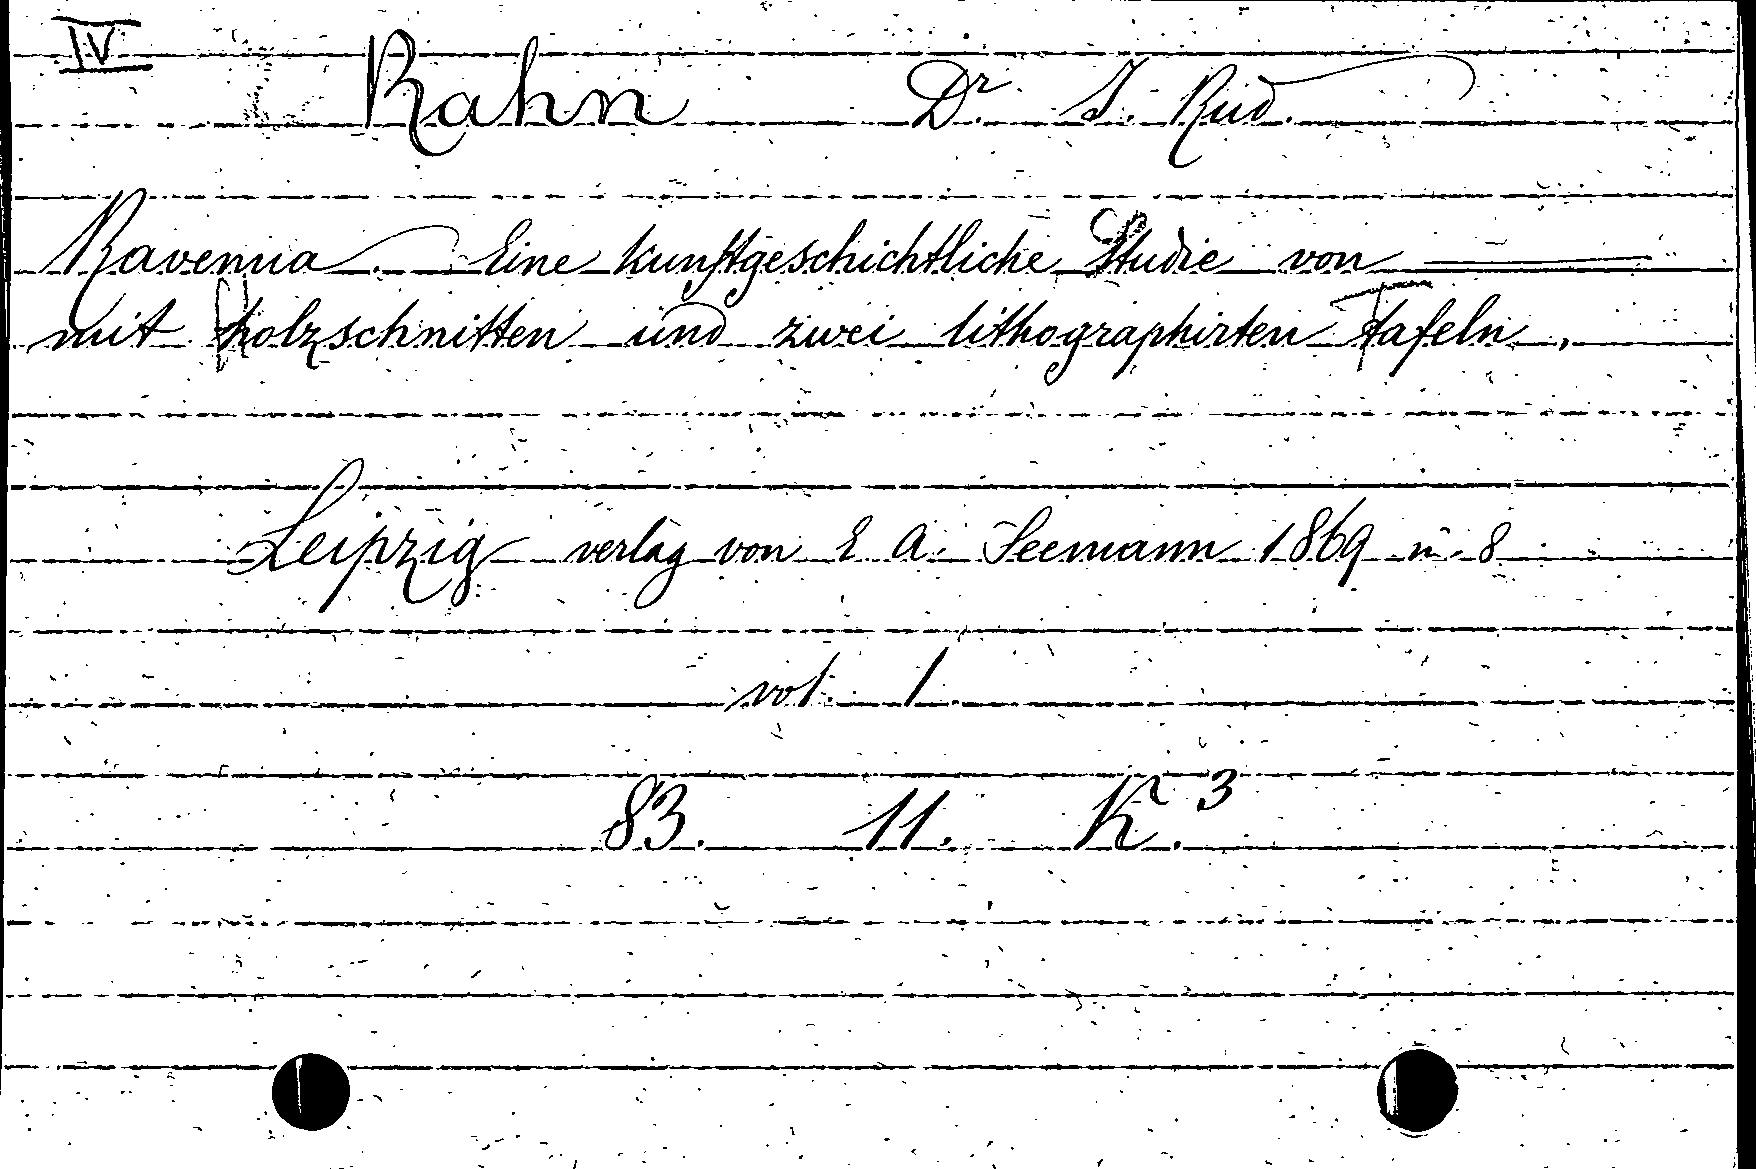 IV
Rahn Dr. J. Rud.
Ravenna. Eine kunstgeschichtliche Studie von ———
mit Holzschnitten und zwei lithographirten Tafeln.
Leipzig verlag von E A. Seemann 1869 in. 8
vol. 1.
83. 11. K.3